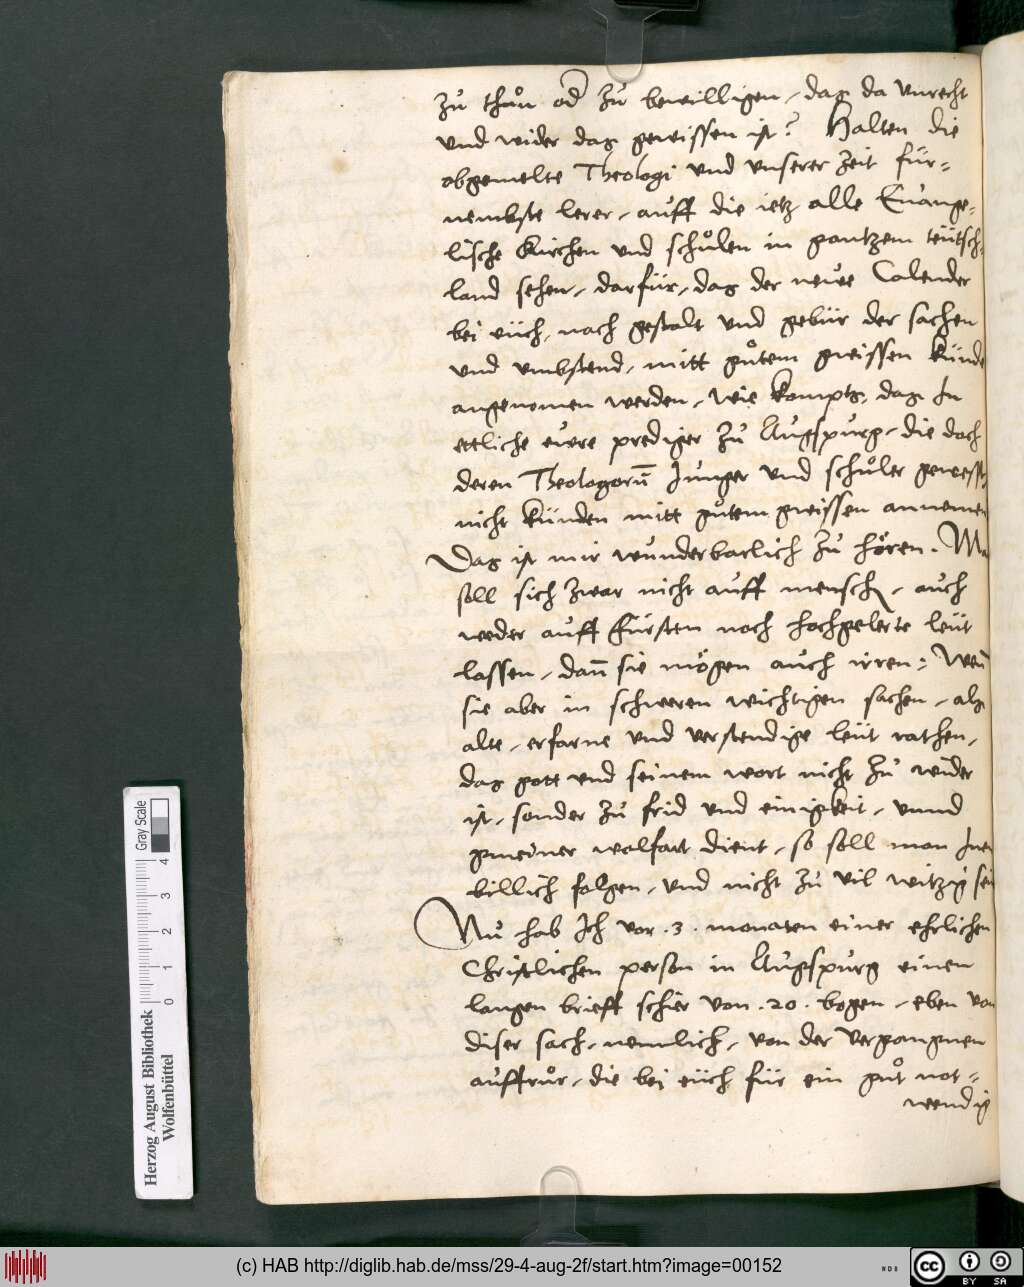 zů thůn od zů bewilligen, das da vnrecht
vnd wider das gewissen ist? Halten die
abgemelte Theologi vnd vnserer zeit für-
nembste lerer, auff die ietz alle Euange-
lische kirchen vnd schůlen in gantzem teütsch-
land sehen, darfür, das der neüe Calender
bei eüch, nach gestalt vnd gebür der sachen
vnd vmbstend, mitt gůtem gweissen künde
angenomen werden, wie kompts, das In
ettliche euere prediger zů Augspurg, die doch
deren Theologorū Junger vnd schůler gewesst
nicht künden mitt gůtem gweissen annemen
Das ist mir wunderbarlich zů hören. Ma
soll sich zwar nicht auff mensch, auch
weder auff Fürsten noch hochgelerte leüt
lassen, dañ sie mögen auch irren: Weñ
sie aber in schweren wichtigen sachen, als
alte, erfarne vnd verstendige leüt rathen,
das gott vnd seinem wort nicht zů wider
ist, sonder zů frid vnd einigkeit, vnnd
gmeiner wolfart dient, so soll man Inen
billich folgen, vnd nicht zů vil witzig sein
Nu hab Ich vor .3. monaten einer ehrlichen
Christlichen person in Augspurg einen
langen brieff schier von .20. bogen, eben von
diser sach, nemlich, von der vergangnen
auffrůr, die bei eüch für ein gůt not-
wendig
Herzog August Bibliothek
Wolfenbüttel
0 1 2 3 4
Gray Scale
(c) HAB http://diglib.hab.de/mss/29-4-aug-2f/start.htm?image=00152
WDB
cc BY SA